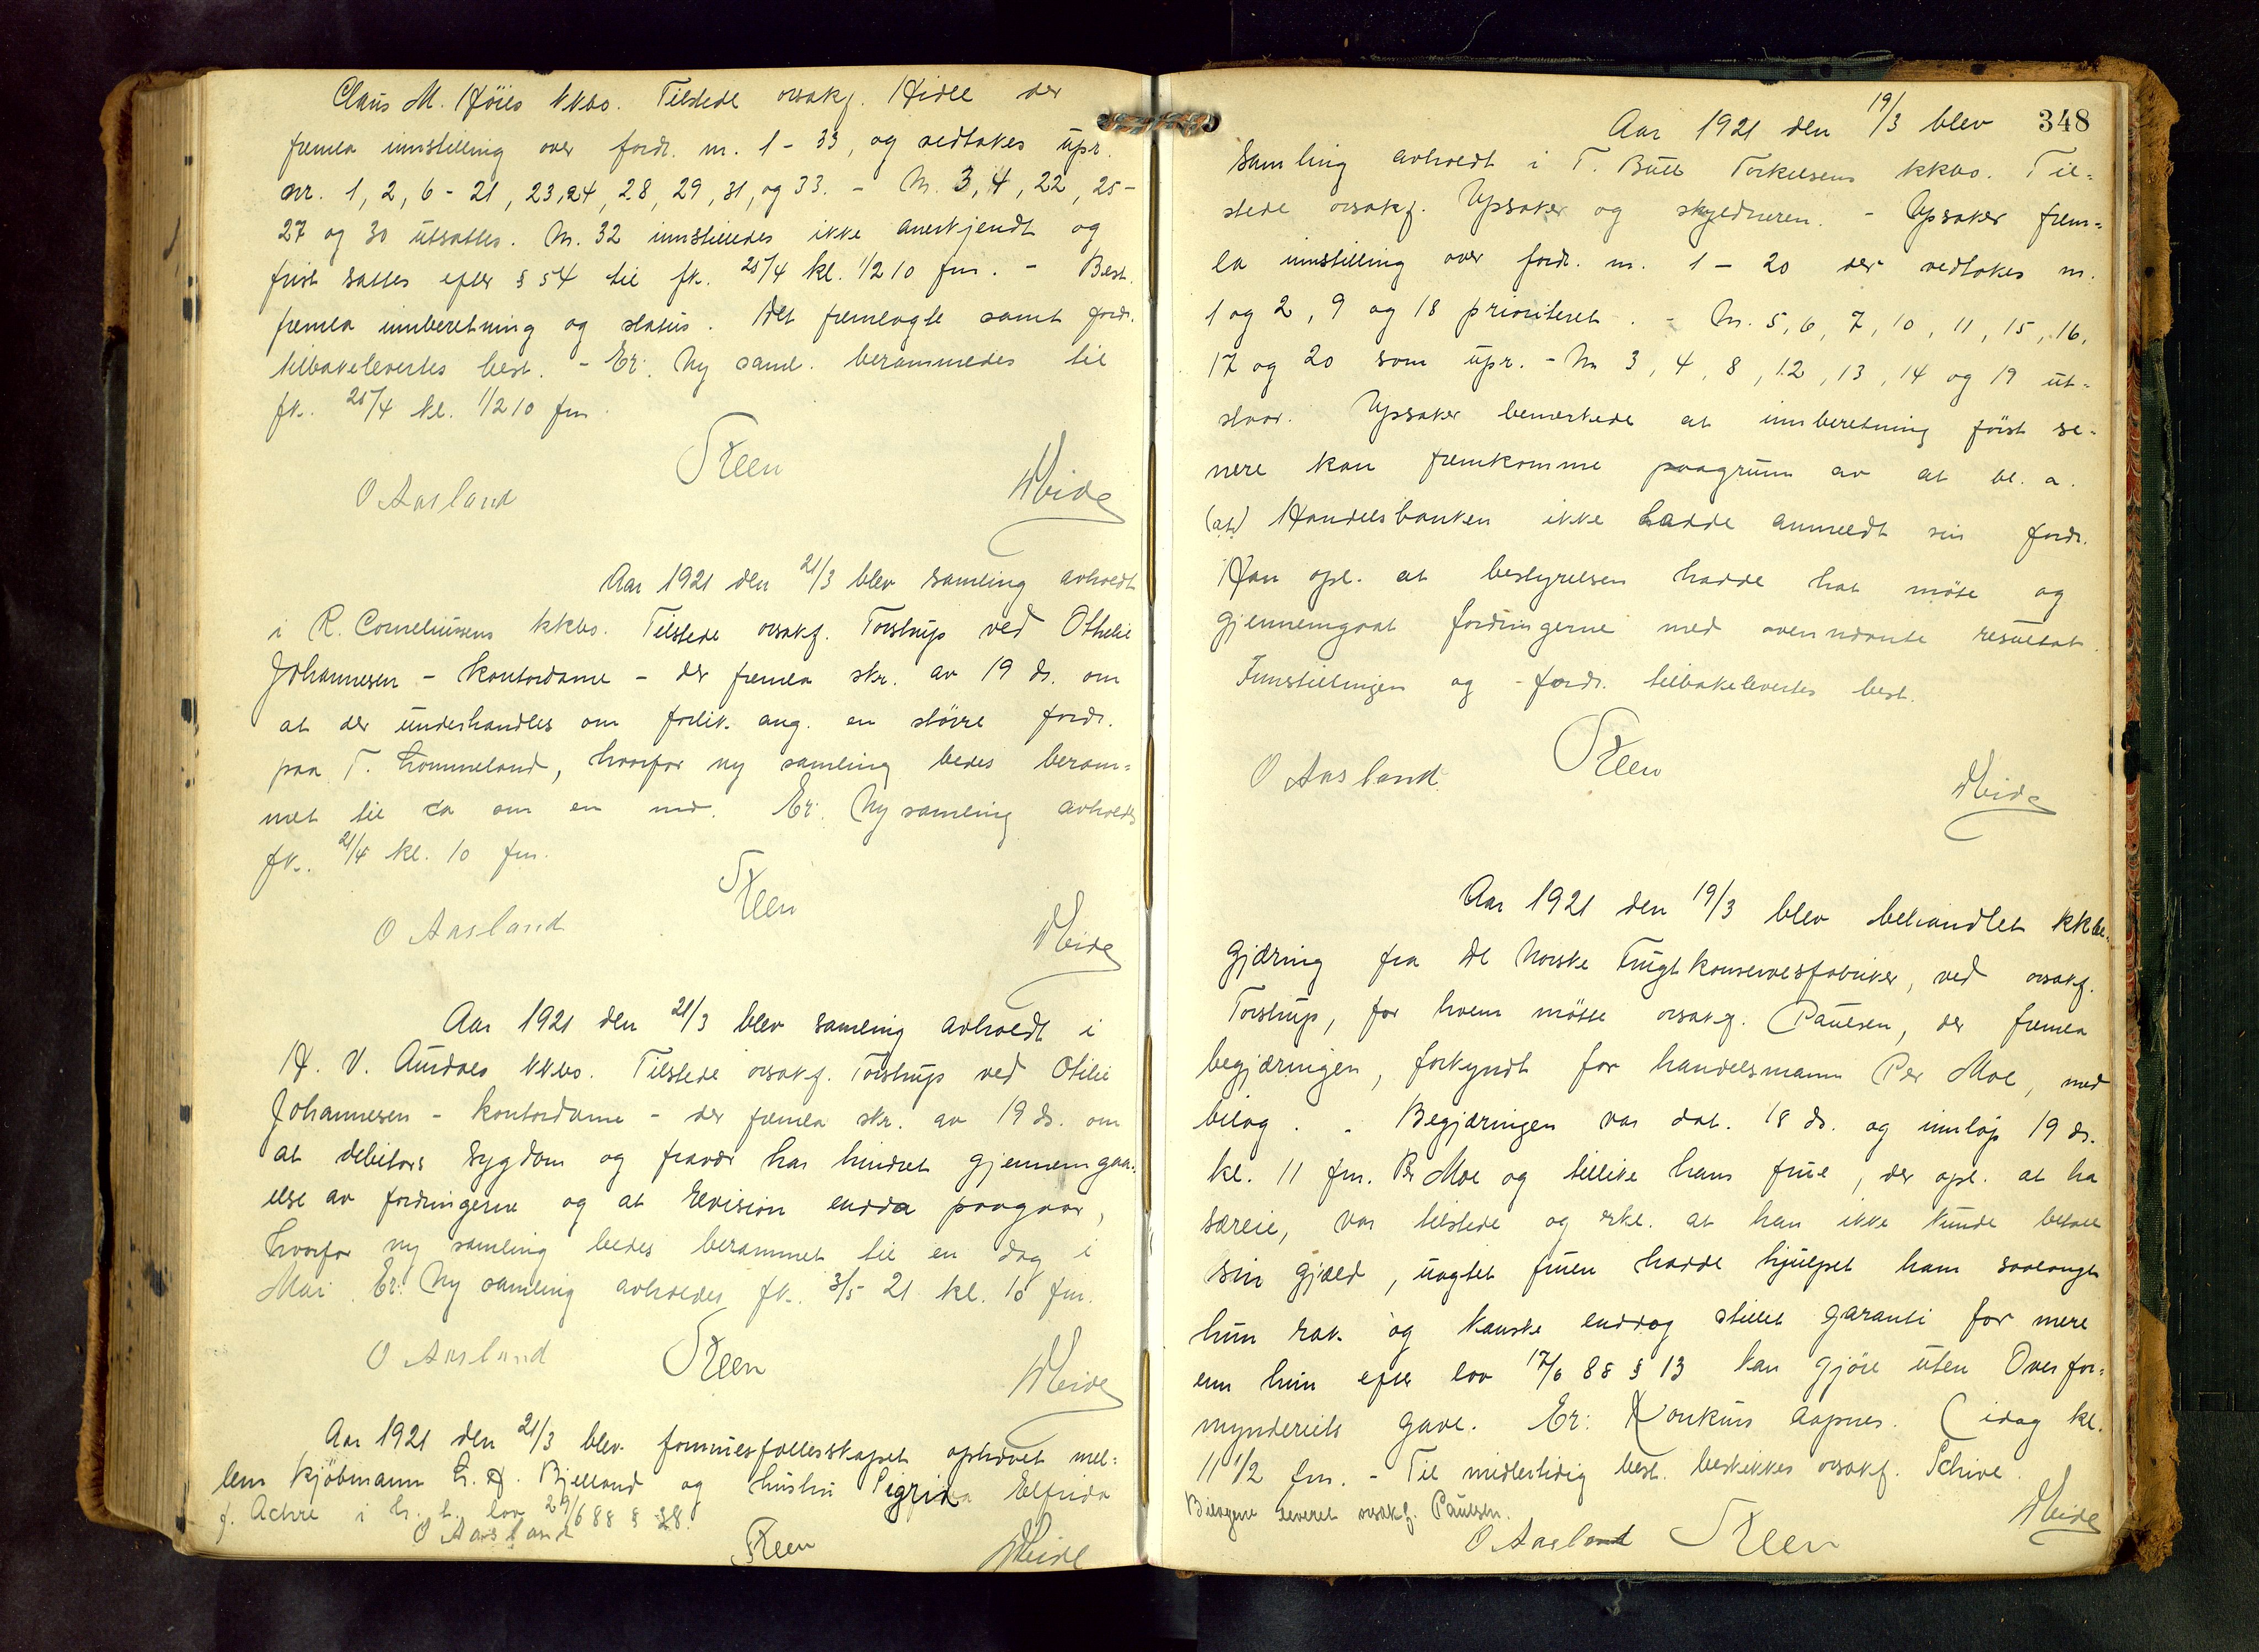 Claus M. Höies kkbo. Tilstede orsakf. Hidle der
fremla innstilling over fordr. nr. 1 - 33, og vedtakes upr.
nr. 1, 2, 6 - 21, 23, 24, 28, 29, 31, og 33. - Nr. 3, 4, 22, 25 -
27 og 30 utsattes. Nr. 32 innstilledes ikke anerkjendt og
frist sattes efter § 54 til fk. 25/4 kl. 1/2 10 fm. - Best.
fremla innberetning og status. Det fremlagte samt fordr.
tilbakelevertes best. - Er: Ny saml. berammedes til
fk. 25/4 kl. 1/2 10 fm.
O Aasland Steen Meide
Aar 1921 den 21/3 blev samling avholdt
i R. Corneliussens kkbo. Tilstede orsakf. Torstrup ved Othelie
Johannesen - kontordame - der fremla skr. av 19 ds. om
at der underhandles om forlik ang. en större fordr.
paa T. Lommeland, hvorfor ny samling bedes beram=
met til ca om en md. Er: Ny samling avholdes
fk. 21/4 kl. 10 fm.
O Aasland Steen Meide
Aar 1921 den 21/3 blev samling avholdt i
H. V. Aurdals kkbo. Tilstede orsakf. Torstrup ved Otilie
Johannesen - kontordame - der fremla skr. av 19 ds. om
at debitors sygdom og fravær har hindret gjennemgaa=
else av fordringerne og at revision endda paagaar,
hvorfor ny samling bedes berammet til en dag i
Mai. Er: Ny samling avholdes fk. 3/5 21 kl. 10 fm.
O Aasland Steen Meide
Aar 1921 den 21/3 blev formuesfællesskapet ophævet mel=
lem kjöbmann L. A. Bjelland og hustru Sigrida Elfrida
f. Achre i h. t. lov 29/6 88 § 38.
O Aasland Steen Meide
348
Aar 1921 den 19/3 blev
samling avholdt i T. Bull Torkelsens kkbo. Til=
stede orsakf. Opsaker og skyldneren. - Opsaker frem=
la innstilling over fordr. nr. 1 - 20 der vedtokes nr.
1 og 2, 9 og 18 prioriteret. - Nr. 5, 6, 7, 10, 11, 15, 16,
17 og 20 som upr. - Nr 3, 4, 8, 12, 13, 14 og 19 ut=
staar. Opsaker bemerkede at innberetning först se=
nere kan fremkomme paagrunn av at bl. a.
(at) Handelsbanken ikke hadde anmeldt sin fordr.
Han opl. at bestyrelsen hadde hat möte og
gjennemgaat fordringerne med ovennævnte resultat.
Innstillingen og fordr. tilbakelevertes best.
O Aasland Steen Meide
Aar 1921 den 19/3 blev behandlet kkbe=
gjæring fra De Norske Frugtkonservesfabriker, ved orsakf.
Torstrup, for hvem mötte orsakf. Paulsen, der fremla
begjæringen, forkyndt for handelsmann Per Moe, med
bilag. - Begjæringen var dat. 18 ds. og innlöp 19 ds.
kl. 11 fm. Per Moe og tillike hans frue, der opl. at ha
særeie, var tilstede og erkl. at han ikke kunde betale
sin gjæld, uagtet fruen hadde hjulpet ham saalangt
hun rak og kanske enddog stillet garanti for mere
enn hun efter lov 17/6 88 § 13 kan gjöre uten Overfor=
mynderiets gave. Er: Konkurs aapnes. (idag kl.
11 1/2 fm. - Til midlertidig best. beskikkes orsakf. Schive.
Bilagene leveret orsakf. Paulsen.
O Aasland Steen Meide